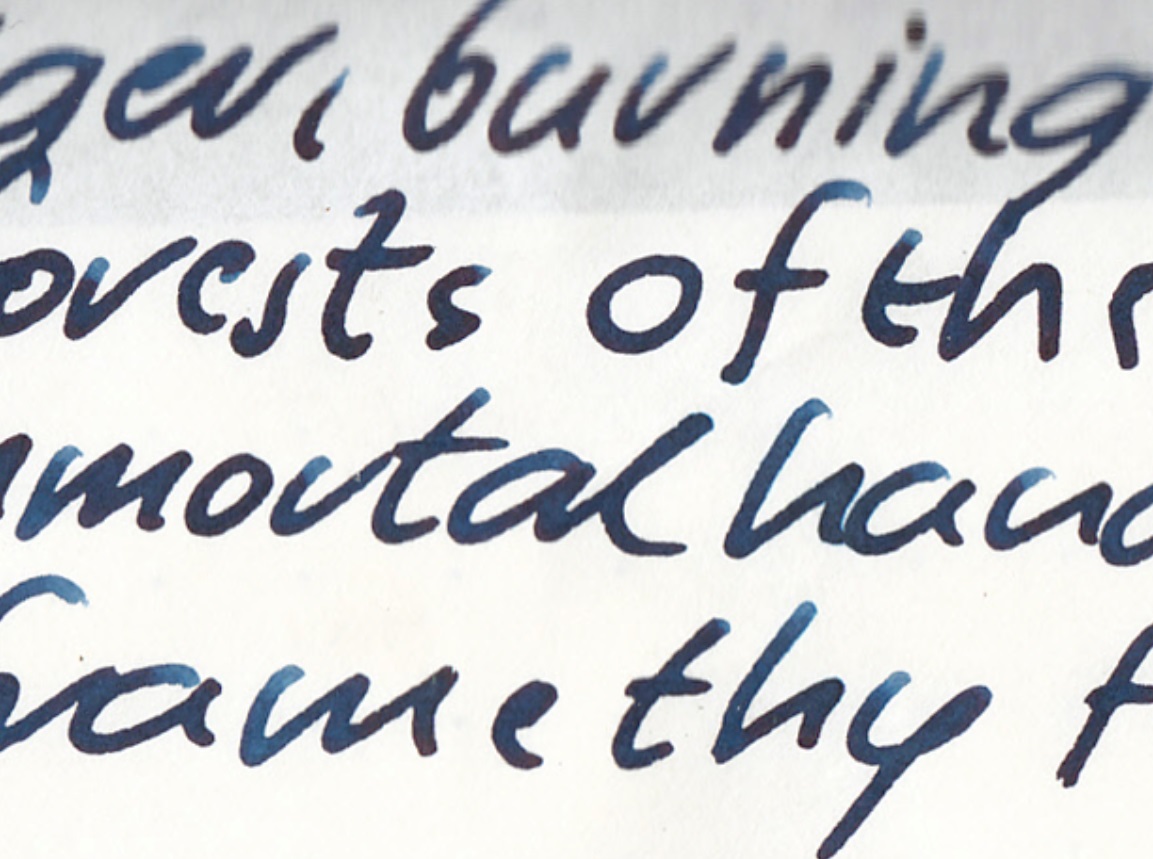 ger, burning
orests of the
mmortal hand
frame thy f